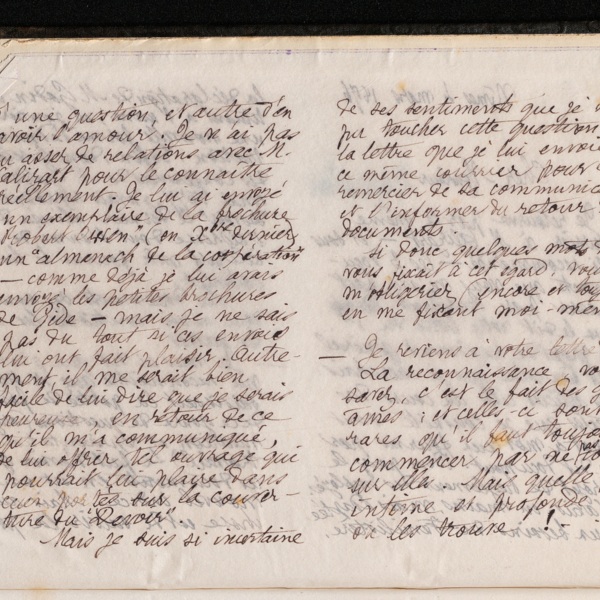 d'une question, et autre d'en
avoir l'amour. Je n'ai pas
eu assez de relations avec M.
pour le connaître
réellement. Je lui ai envoyé
un exemplaire de la brochure
"Robert Owen" (en Xbre dernier)
un "almanach de la coopération"
— comme déjà je lui avais
envoyé les petites brochures
de Gide — mais je ne sais
pas du tout si ces envois
lui ont fait plaisir. Autre-
ment, il me serait bien
facile de lui dire que je serais
heureuse, en retour de ce
qu'il m'a communiqué,
de lui offrir tel ouvrage qui
pourrait lui plaire dans
ceux portés sur la couver-
ture du "Devoir"
Mais je suis si incertaine
de ses sentiments que je
pu toucher cette question
la lettre que je lui envoi
ce même courrier pour
remercier de sa communica
et l'informer du retour
documents.
Si donc quelques mots
vous fixait à cet égard, vou
m'obligeriez encore et tou
en me fixant moi-mêm
— Je reviens à votre lettre
La reconnaissance, vo
savez, c'est le fait des g
âmes ; et celles-ci sont
rares qu'il faut toujou
commencer par ne pas
sur elle. Mais quelle
intime et profonde
on les trouve !